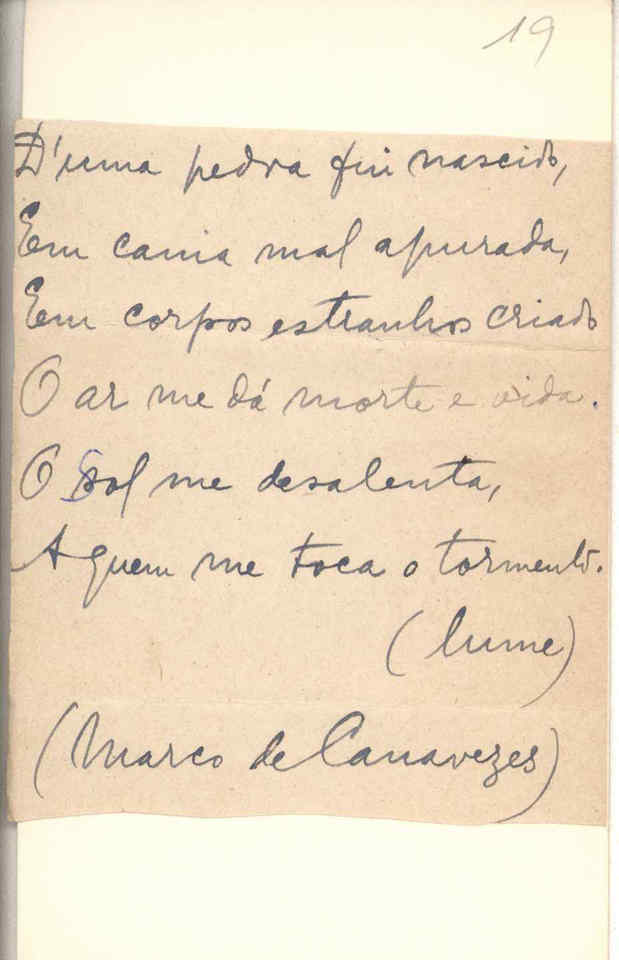 19
D'uma pedra fui nascido,
Em cama mal apurada,
Em corpos estranhos criado
O ar me dá morte e vida.
O Sol me desalenta,
A quem me toca o tormento.
(lume)
(Marco de Canavezes)